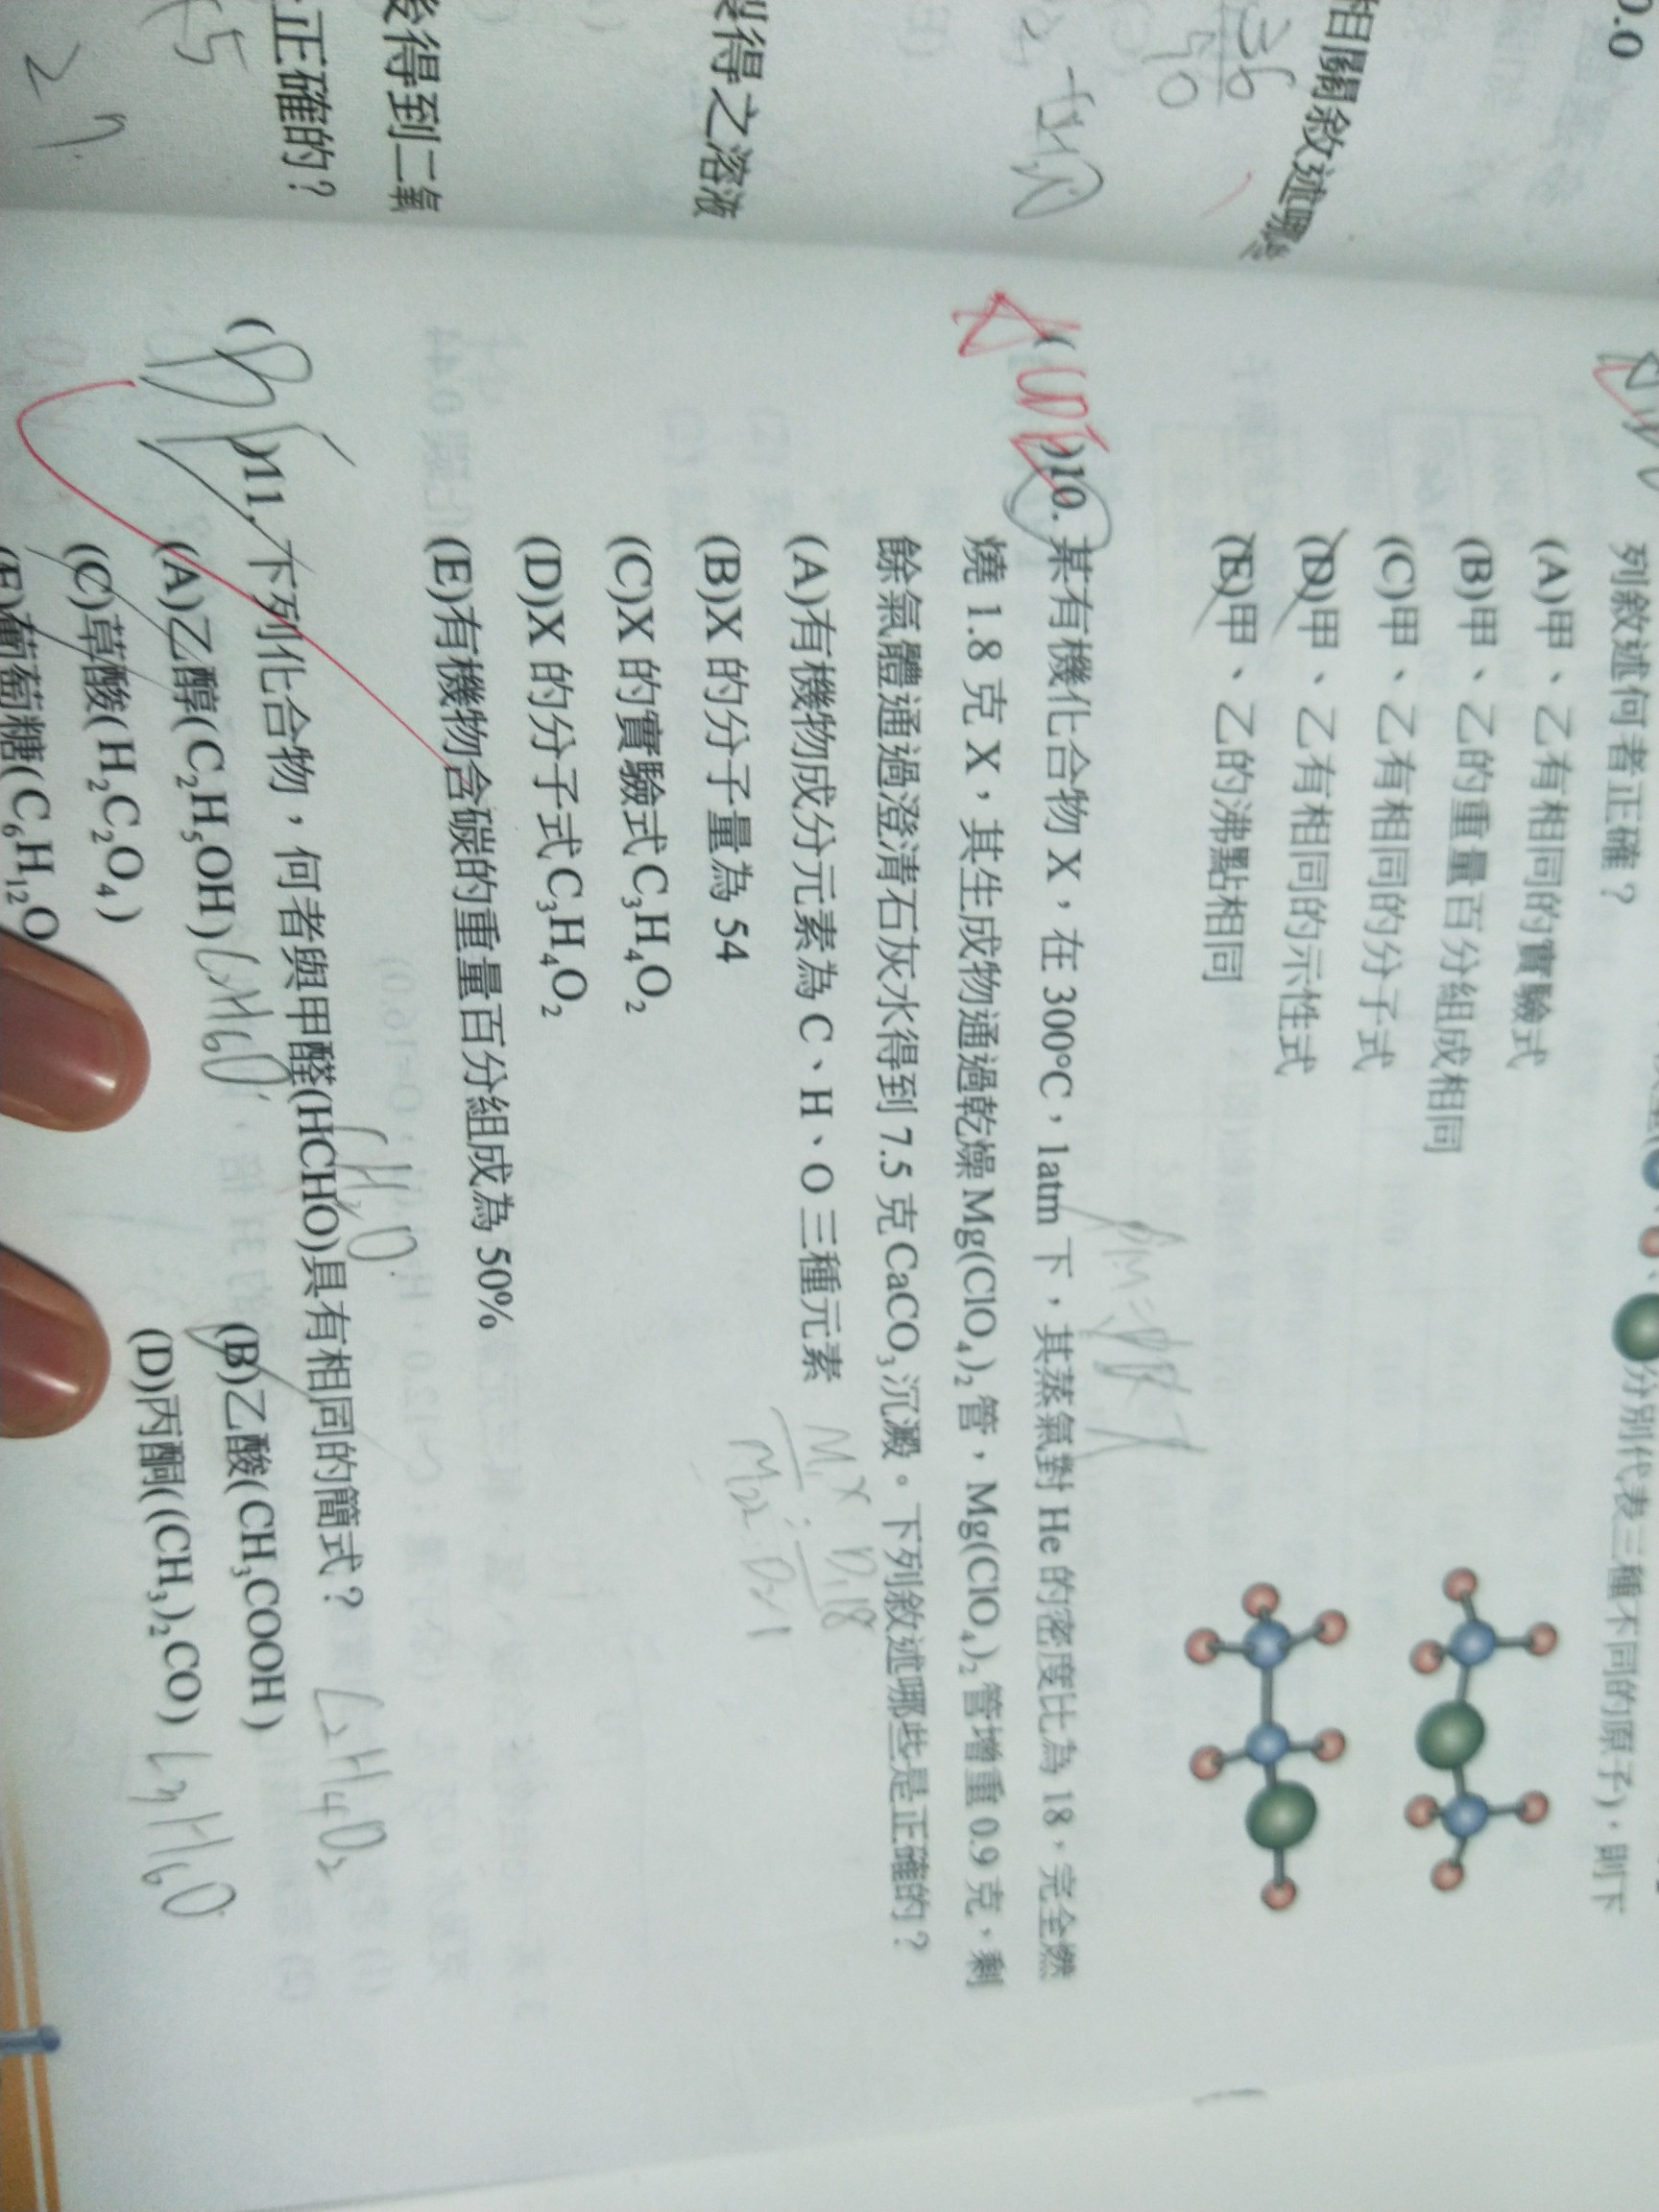 0.0
相關敘述哪些
36
50
製得之溶液
後得到二氧
正確的？
5
列敘述何者正確？
分別代表三種不同的原子)，則下
(A)甲、乙有相同的實驗式
(B)甲、乙的重量百分組成相同
(C)甲、乙有相同的分子式
(D)甲、乙有相同的示性式
(E)甲、乙的沸點相同
)10. 某有機化合物 X，在 300°C，1atm 下，其蒸氣對 He 的密度比為 18，完全燃
燒 1.8 克 X，其生成物通過乾燥 Mg(ClO₄)₂ 管，Mg(ClO₄)₂ 管增重 0.9 克，剩
餘氣體通過澄清石灰水得到 7.5 克 CaCO₃ 沉澱。下列敘述哪些是正確的？
(A)有機物成分元素為 C、H、O 三種元素
(B)X 的分子量為 54
(C)X 的實驗式 C₃H₄O₂
(D)X 的分子式 C₃H₄O₂
(E)有機物含碳的重量百分組成為 50%
CH₂O
( )11. 下列化合物，何者與甲醛(HCHO)具有相同的簡式？
(A)乙醇(C₂H₅OH) C₂H₆O
(B)乙酸(CH₃COOH) C₂H₄O₂
(C)草酸(H₂C₂O₄)
(D)丙酮((CH₃)₂CO) C₃H₆O
(E)葡萄糖(C₆H₁₂O